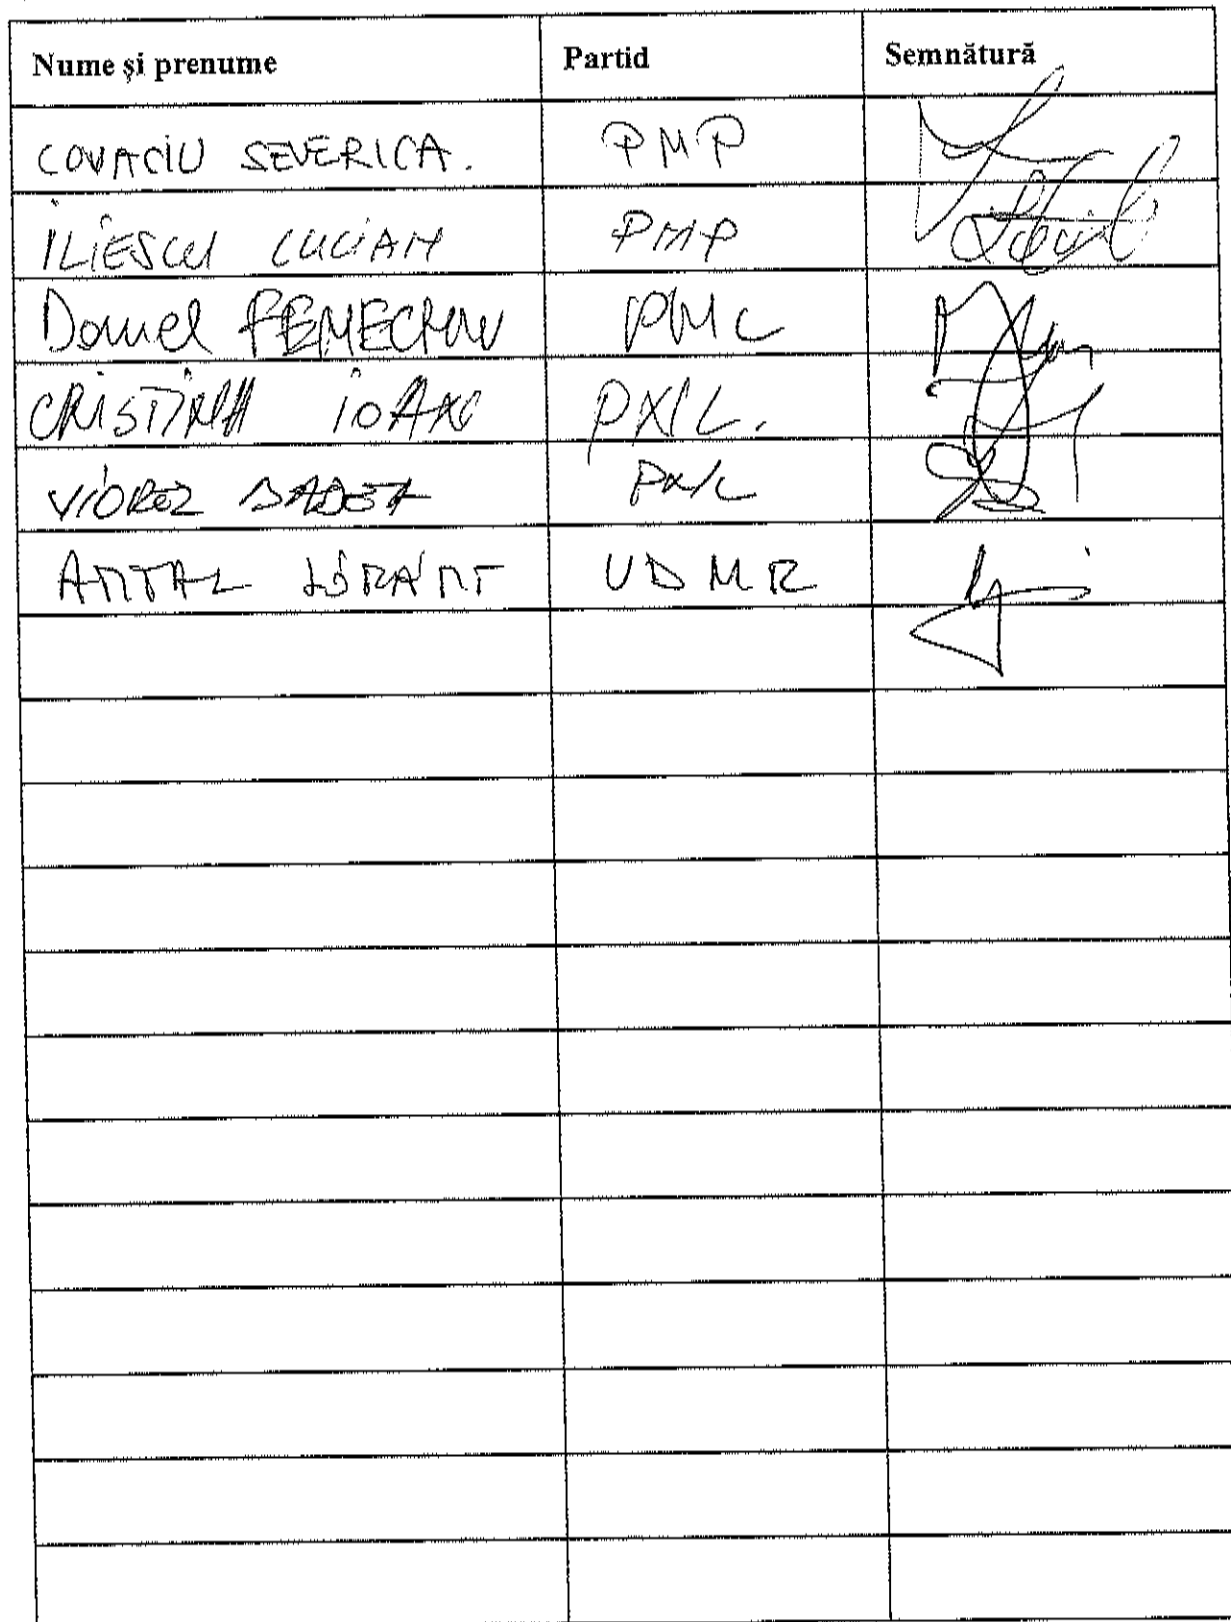 Nume și prenume Partid Semnătură
COVACIU SEVERICA. PMP
ILIESCU LUCIAN PMP
Daniel PNL
CRISTINA IOAN PNL.
VIOREL BADEA PNL
ANTAL LÓRÁNT UDMR